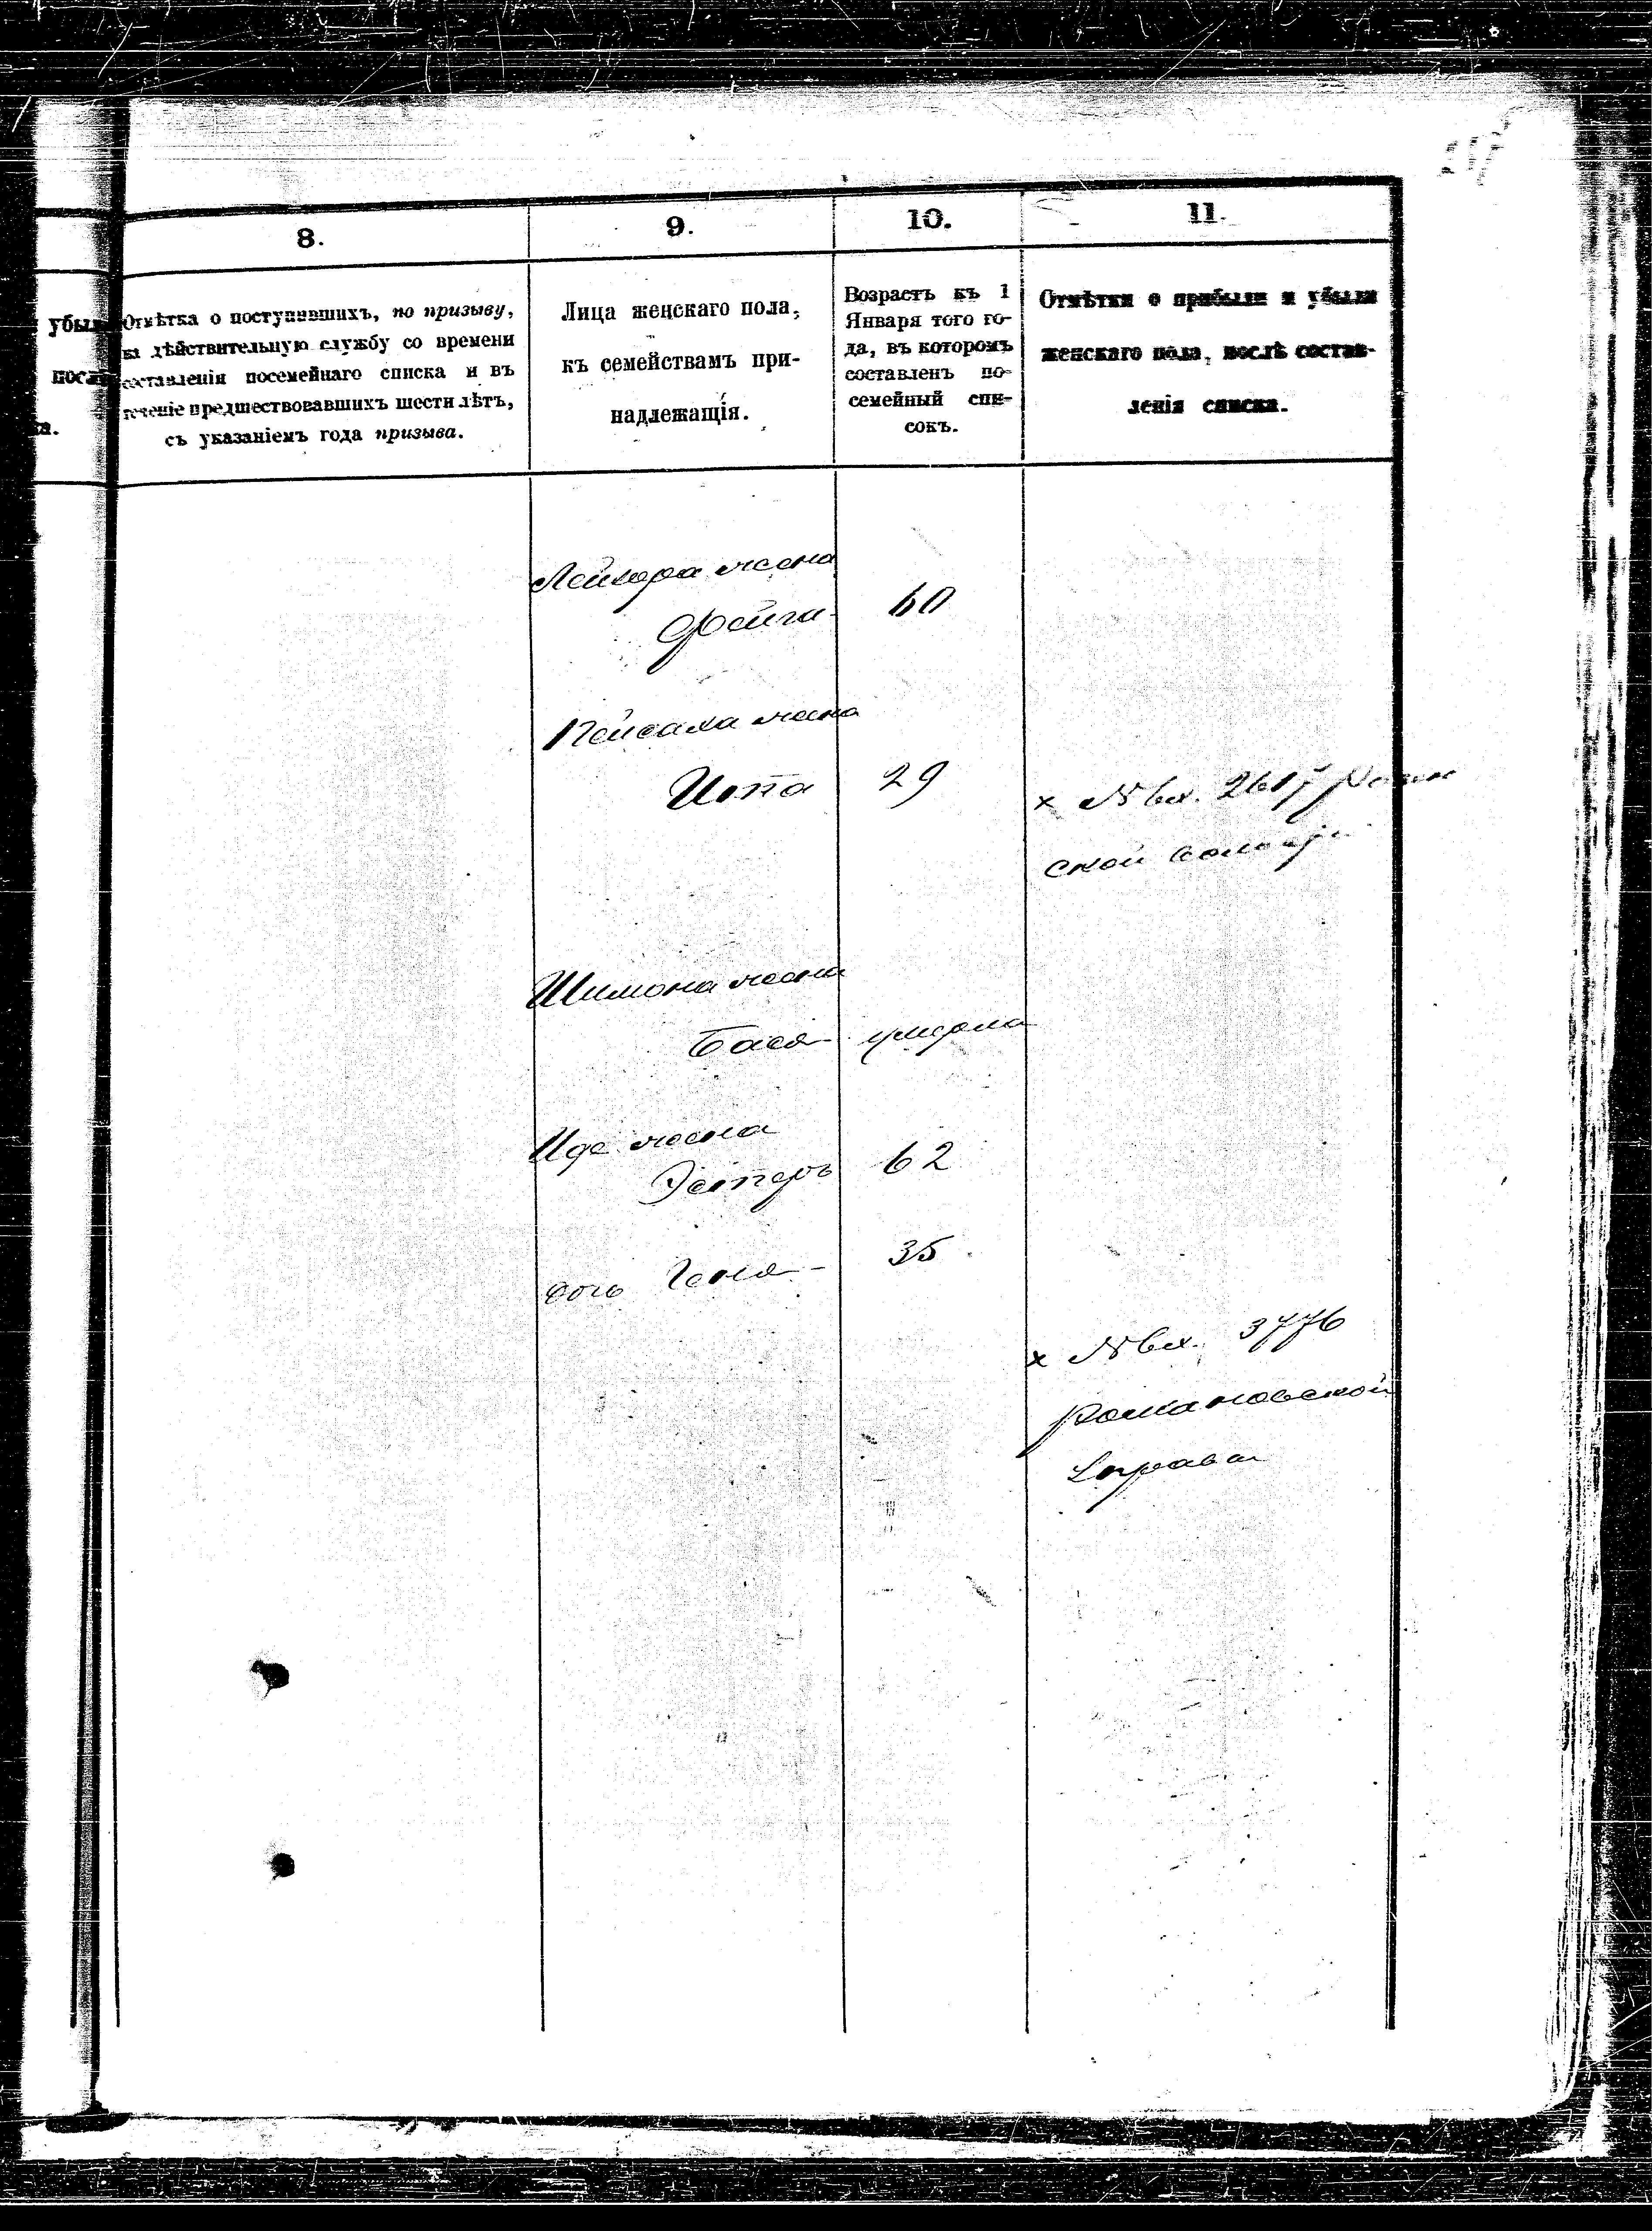 8.
9.
10.
11.
убыл
посл
ка.
Отмѣтка о поступившихъ, по призыву,
на дѣйствительную службу со времени
составленія посемейнаго списка и въ
теченіе предшествовавшихъ шести лѣтъ,
съ указаніемъ года призыва.
Лица женскаго пола,
къ семействамъ при-
надлежащія.
Возрастъ къ 1
Января того го-
да, въ которомъ
составленъ по-
семейный спи-
сокъ.
Отмѣтки о прибыли и убыли
женскаго пола, послѣ состав-
ленія списка.
жена
Фейга 60
Пейсаха жена
Ита 29
х № вх. 2617
ской
Шимона жена
Бася умерла
Иде жена
Эстеръ 62
дочь Геня 35
х № вх. 3776
Романовской
Управы